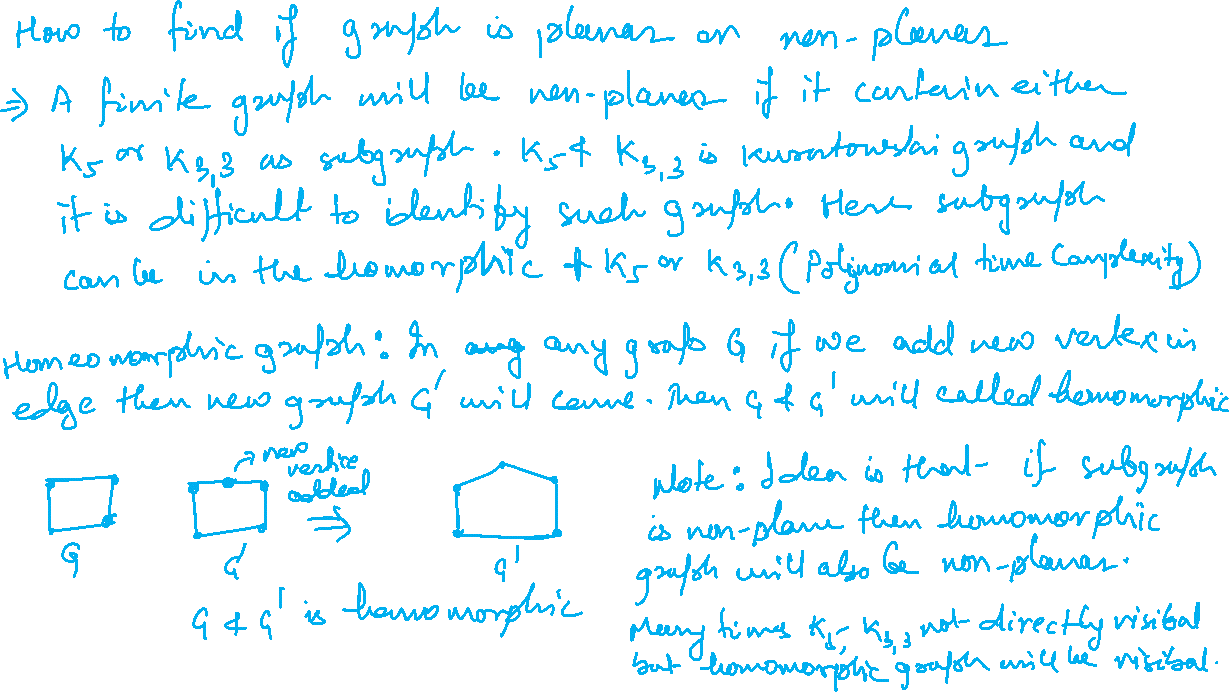 How to find if graph is planar or non-planar
⇒ A finite graph will be non-planar if it contain either
K5 or K3,3 as subgraph. K5 & K3,3 is Kuratowski graph and
it is difficult to identify such graph. Here subgraph
can be in the homorphic of K5 or K3,3 (Polynomial time Complexity)
Homeomorphic graph: In any graph G if we add new vertex in
edge then new graph G' will come. Then G & G' will called homomorphic
new
vertice
added
⇒
G
G'
G'
G & G' is homomorphic
Note: Idea is that if subgraph
is non-plane then homomorphic
graph will also be non-planar.
Many times K5, K3,3 not directly visibal
but homomorphic graph will be visibal.